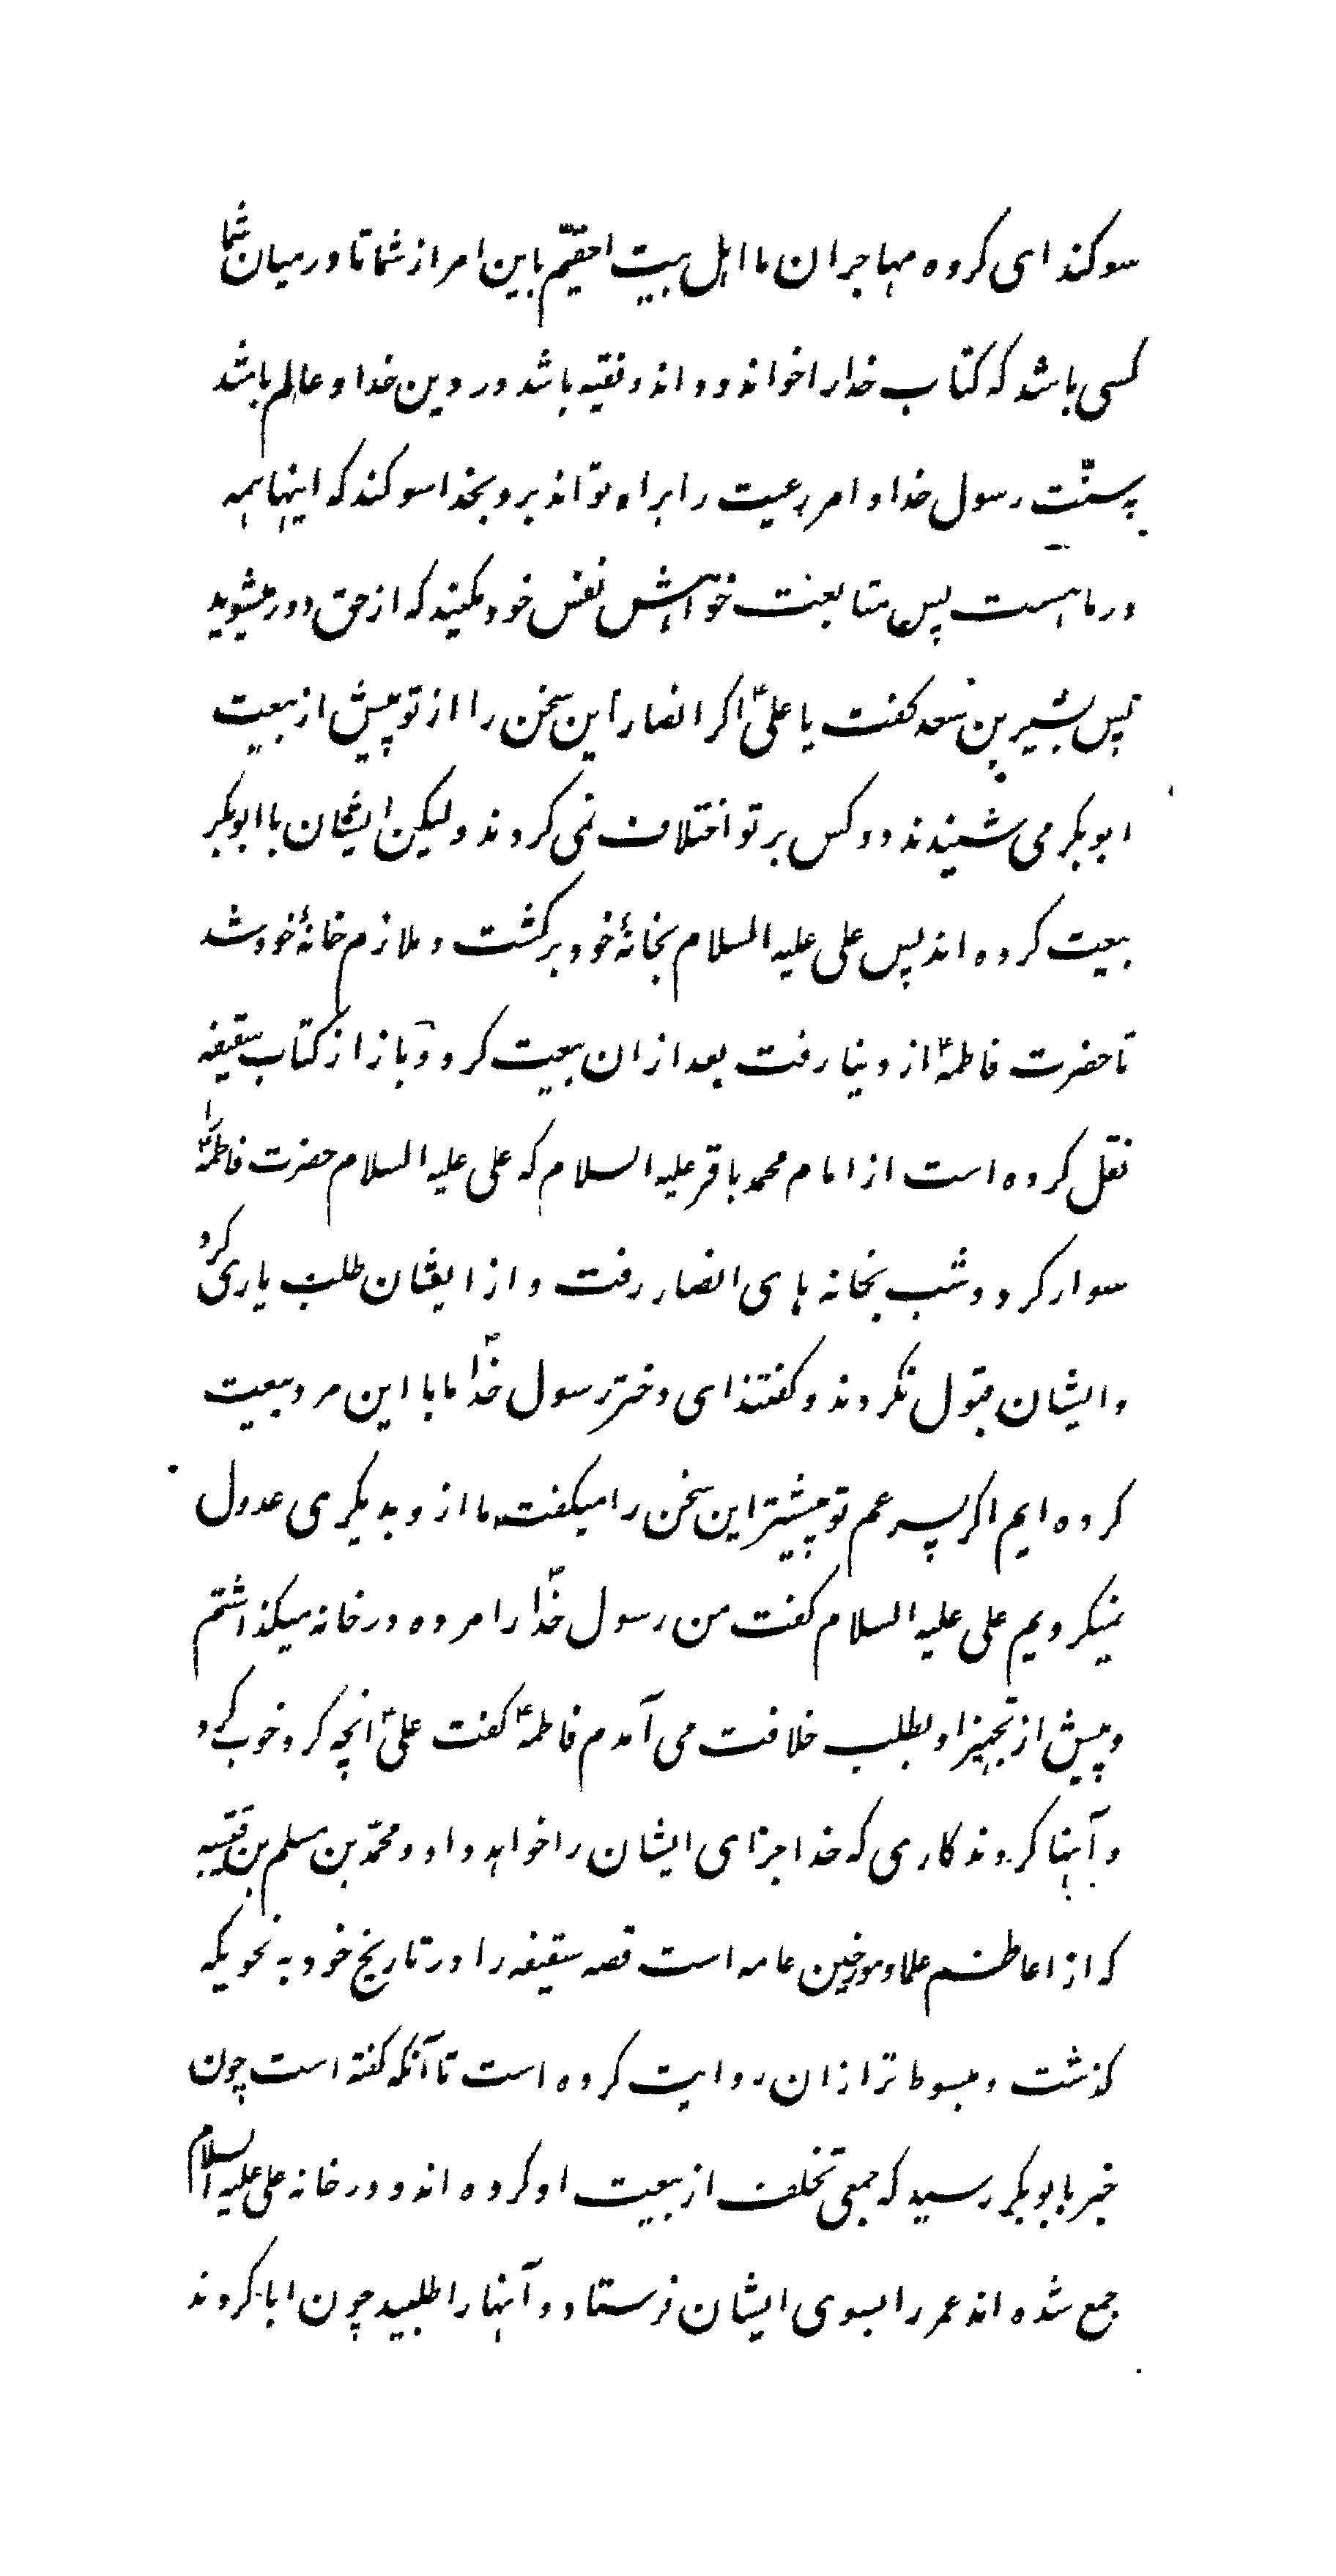 سوکند ای کروه مهاجران ما اهل بیت احقیّم باین امر از شما تا در میان شما
کسی باشد که کتاب خدا را خواند و داند و فقیه باشد در دین خدا و عالم باشد
بسنّت رسول خدا و امر رعیت را براه تواند برد بخدا سوکند که اینها همه
در ما هست پس متابعت خواهش نفس خود مکنید که از حق دور میشوید
پس بشیر بن سعد کفت یا علیؑ اکر انصار این سخن را از تو پیش از بیعت
ابوبکر می شنیدند دو کس بر تو اختلاف نمی کردند و لیکن ایشان با ابوبکر
بیعت کرده اند پس علی علیه السلام بخانهٔ خود برکشت و ملازم خانهٔ خود شد
تا حضرت فاطمهؑ از دنیا رفت بعد از ان بیعت کرد و باز از کتاب سقیفه
نقل کرده است از امام محمد باقر علیه السلام که علی علیه السلام حضرت فاطمهؑ را
سوار کرد و شب بخانه های انصار رفت و از ایشان طلب یاری کرد
و ایشان قبول نکردند و کفتند ای دختر رسول خداؐ ما با این مرد بیعت
کرده ایم اکر پسر عم تو پیشتر این سخن را میکفت ما از و بدیکری عدول
نمیکردیم علی علیه السلام کفت من رسول خداؐ را مرده در خانه میکذاشتم
و پیش از تجهیز او بطلب خلافت می آمدم فاطمهؑ کفت علیؑ انچه کرد خوب کرد
و آنها کردند کاری که خدا جزای ایشان را خواهد داد و محمّد بن مسلم بن قتیبه
که از اعاظم علما و مورخین عامه است قصه سقیفه را در تاریخ خود به نحویکه
کذشت و مبسوط تر از ان روایت کرده است تا آنکه کفته است چون
خبر بابوبکر رسید که جمعی تخلف از بیعت او کرده اند و در خانه علی علیه السلام
جمع شده اند عمر را بسوی ایشان فرستاد و آنها را طلبید چون ابا کردند